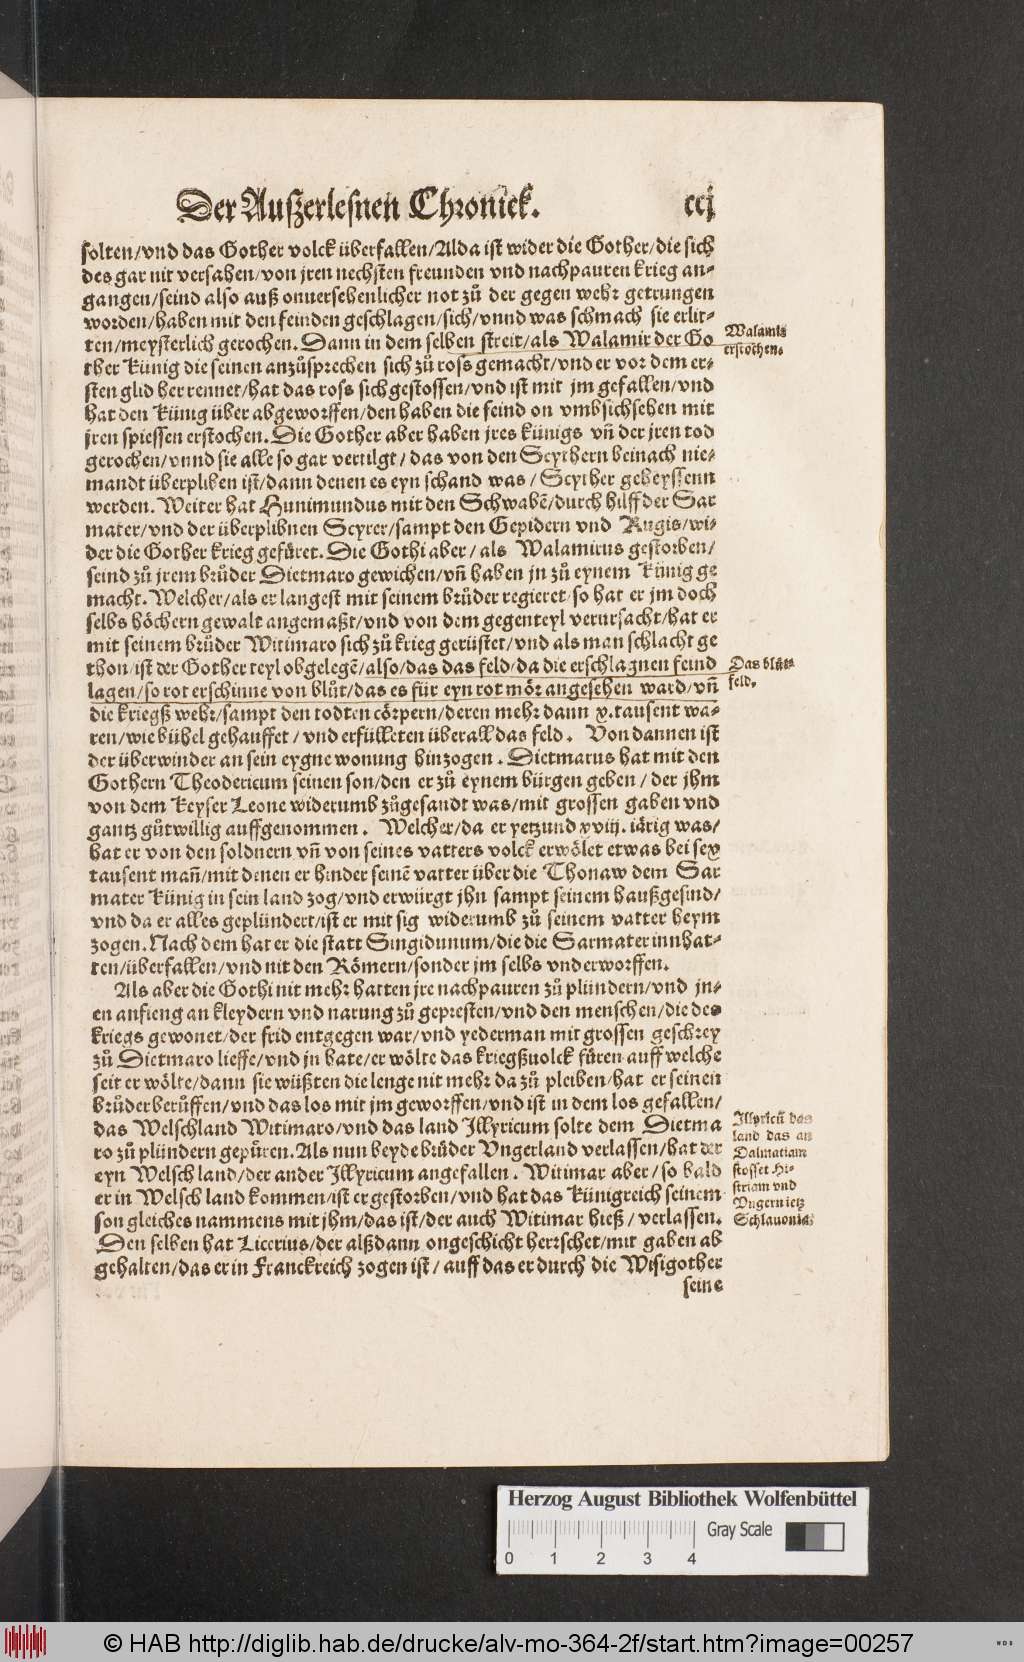 Der Außerlesnen Chroniek. ccj
solten/vnd das Gother volck überfallen/Alda ist wider die Gother/die sich
des gar nit versahen/von jren nechsten freunden vnd nachpauren krieg an-
gangen/seind also auß onuersehenlicher not zů der gegen wehr getrungen
worden/haben mit den feinden geschlagen/sich/vnnd was schmach sie erlit-
ten/meysterlich gerochen. Dann in dem selben streit/als Walamir der Go
ther Künig die seinen anzůsprechen sich zů ross gemacht/vnd er vor dem er-
sten glid her rennet/hat das ross sich gestossen/vnd ist mit jm gefallen/vnd
hat den Künig über abgeworffen/den haben die feind on vmbsichsehen mit
jren spiessen erstochen. Die Gother aber haben jres künigs vñ der jren tod
gerochen/vnnd sie alle so gar vertilgt/das von den Scythern beinach nie-
mandt überpliben ist/dann denen es eyn schand was/Scyther geheyssenn
werden. Weiter hat Hunimundus mit den Schwabẽ/durch hilff der Sar
mater/vnd der überplibnen Scyrer/sampt den Gepidern vnd Rugis/wi-
der die Gother krieg gefüret. Die Gothi aber/als Walamirus gestorben/
seind zů jrem brůder Dietmaro gewichen/vñ haben jn zů eynem Künig ge
macht. Welcher/als er langest mit seinem brůder regieret/so hat er jm doch
selbs höchern gewalt angemaßt/vnd von dem gegenteyl verursacht/hat er
mit seinem brůder Witimaro sich zů krieg gerüstet/vnd als man schlacht ge
thon/ist der Gother teyl obgelegẽ/also/das das feld/da die erschlagnen feind
lagen/so rot erschinne von blůt/das es für eyn rot mör angesehen ward/vñ
die kriegß wehr/sampt den todten cörpern/deren mehr dann x.tausent wa-
ren/wie bühel gehauffet/vnd erfülleten überall das feld. Von dannen ist
der überwinder an sein eygne wonung hinzogen. Dietmarus hat mit den
Gothern Theodericum seinen son/den er zů eynem bürgen geben/der jhm
von dem Keyser Leone widerumb zůgesandt was/mit grossen gaben vnd
gantz gůtwillig auffgenommen. Welcher/da er yetzund xviij. järig was/
hat er von den soldnern vñ von seines vatters volck erwölet etwas bei sex
tausent mañ/mit denen er hinder seinẽ vatter über die Thonaw dem Sar
mater Künig in sein land zog/vnd erwürgt jhn sampt seinem haußgesind/
vnd da er alles geplündert/ist er mit sig widerumb zů seinem vatter heym
zogen. Nach dem hat er die statt Singidunum/die die Sarmater innhat-
ten/überfallen/vnd nit den Römern/sonder jm selbs vnderworffen.
Als aber die Gothi nit mehr hatten jre nachpauren zů plündern/vnd jn-
en anfieng an kleydern vnd narung zů gepresten/vnd den menschen/die des
kriegs gewonet/der frid entgegen war/vnd yederman mit grossen geschrey
zů Dietmaro lieffe/vnd jn bate/er wölte das kriegßuolck füren auff welche
seit er wölte/dann sie wüßten die lenge nit mehr da zů pleiben/hat er seinen
brůder berůffen/vnd das los mit jm geworffen/vnd ist in dem los gefallen/
das Welschland Witimaro/vnd das land Illyricum solte dem Dietma
ro zů plündern gepüren. Als nun beyde brüder Vngerland verlassen/hat der
eyn Welsch land/der ander Illyricum angefallen. Witimar aber/so bald
er in Welsch land kommen/ist er gestorben/vnd hat das Künigreich seinem
son gleiches nammens mit jhm/das ist/der auch Witimar hieß/verlassen.
Den selben hat Licerius/der alßdann ongeschicht herrschet/mit gaben ab
gehalten/das er in Franckreich zogen ist/auff das er durch die Wisigother
seine
Walamir
erstochen.
Das blůt-
feld.
Illyricũ das
land das an
Dalmatiam
stosset Hi-
striam vnd
Vngern ietz
Schlauonia.
Herzog August Bibliothek Wolfenbüttel
Gray Scale
0 1 2 3 4
© HAB http://diglib.hab.de/drucke/alv-mo-364-2f/start.htm?image=00257